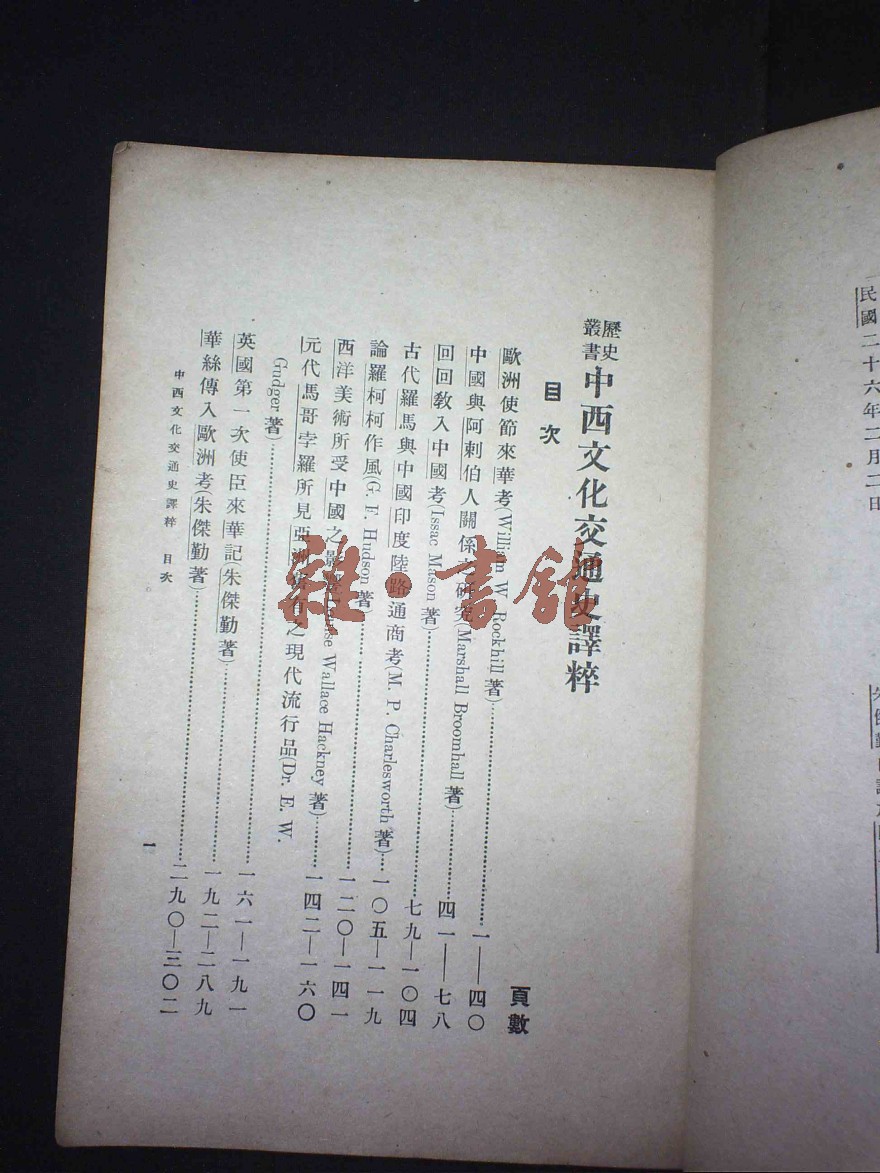 民國二十六年二月二日
歷史叢書 中西文化交通史譯粹
目次
頁數
歐洲使節來華考(William W. Rockhill 著)……一—四〇
中國與阿剌伯人關係之研究(Marshall Broomhall 著)……四一—七八
回回教入中國考(Issac Mason 著)……七九—一〇四
古代羅馬與中國印度陸路通商考(M. P. Charlesworth 著)…一〇五—一一九
論羅柯柯作風(G. F. Hudson 著)……一二〇—一四一
西洋美術所受中國之影響(Louise Wallace Hackney 著)……一四二—一六〇
元代馬哥孛羅所見亞洲舊有之現代流行品(Dr. E. W.
Gudger 著)……一六一—一九一
英國第一次使臣來華記(朱傑勤著)……一九二—二八九
華絲傳入歐洲考(朱傑勤著)……二九〇—三〇二
中西文化交通史譯粹 目次
一
雜·書館